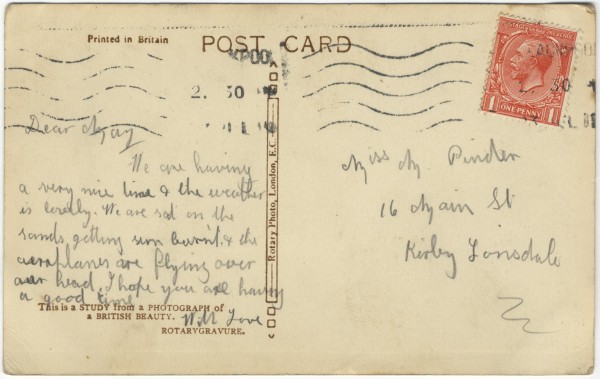 Printed in Britain
POST CARD
KPOO
2. 30
30
ONE PENNY
1 1
Dear May
We are having
a very nice time & the weather
is lovely. We are sat on the
sands, getting sun burnt & the
aeroplanes are flying over
our head. I hope you are having
a good time
With Love
Miss M. Pinder
16 Main St
Kirby Lonsdale
Rotary Photo, London, E.C.
This is a STUDY from a PHOTOGRAPH of
a BRITISH BEAUTY.
ROTARYGRAVURE.